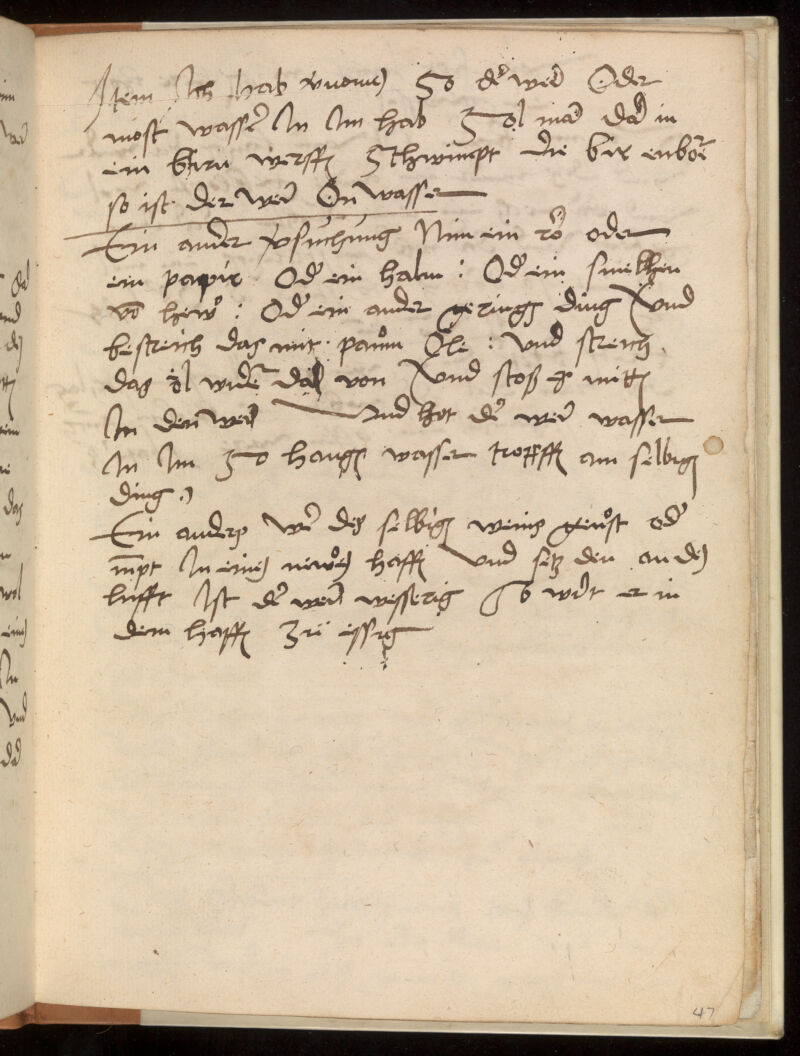 Item Ich hab vernomen So der wein Oder
most wasser In Im hab Sol man dar in
ein birn werffen Schwimpt die bir enbor
so ist der wein On wasser
Ein ander versuchung Nim ein ror oder
ein papir Oder ein halm : Oder ein smelhen
von hew : Oder ein ander gerings ding Vnd
bestreich das mit paum Ole : Vnd streich
das öl wider dar von Vnd stoß es mitten
In den wein Vnd hot der wein wasser
In Im So hangen wasser tropffen am selbigen
ding
Ein anders des selbigen weins oder
In einen newen haffen Vnd setz den an den
lufft Ist der wein wesserig So wirt er in
dem haffen zu essig
47